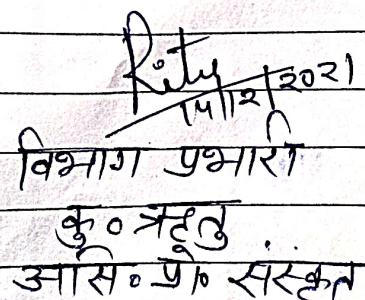 Ritu
14/12/2021
विभाग प्रभारी
कु० ऋतु
असि० प्रो० संस्कृत